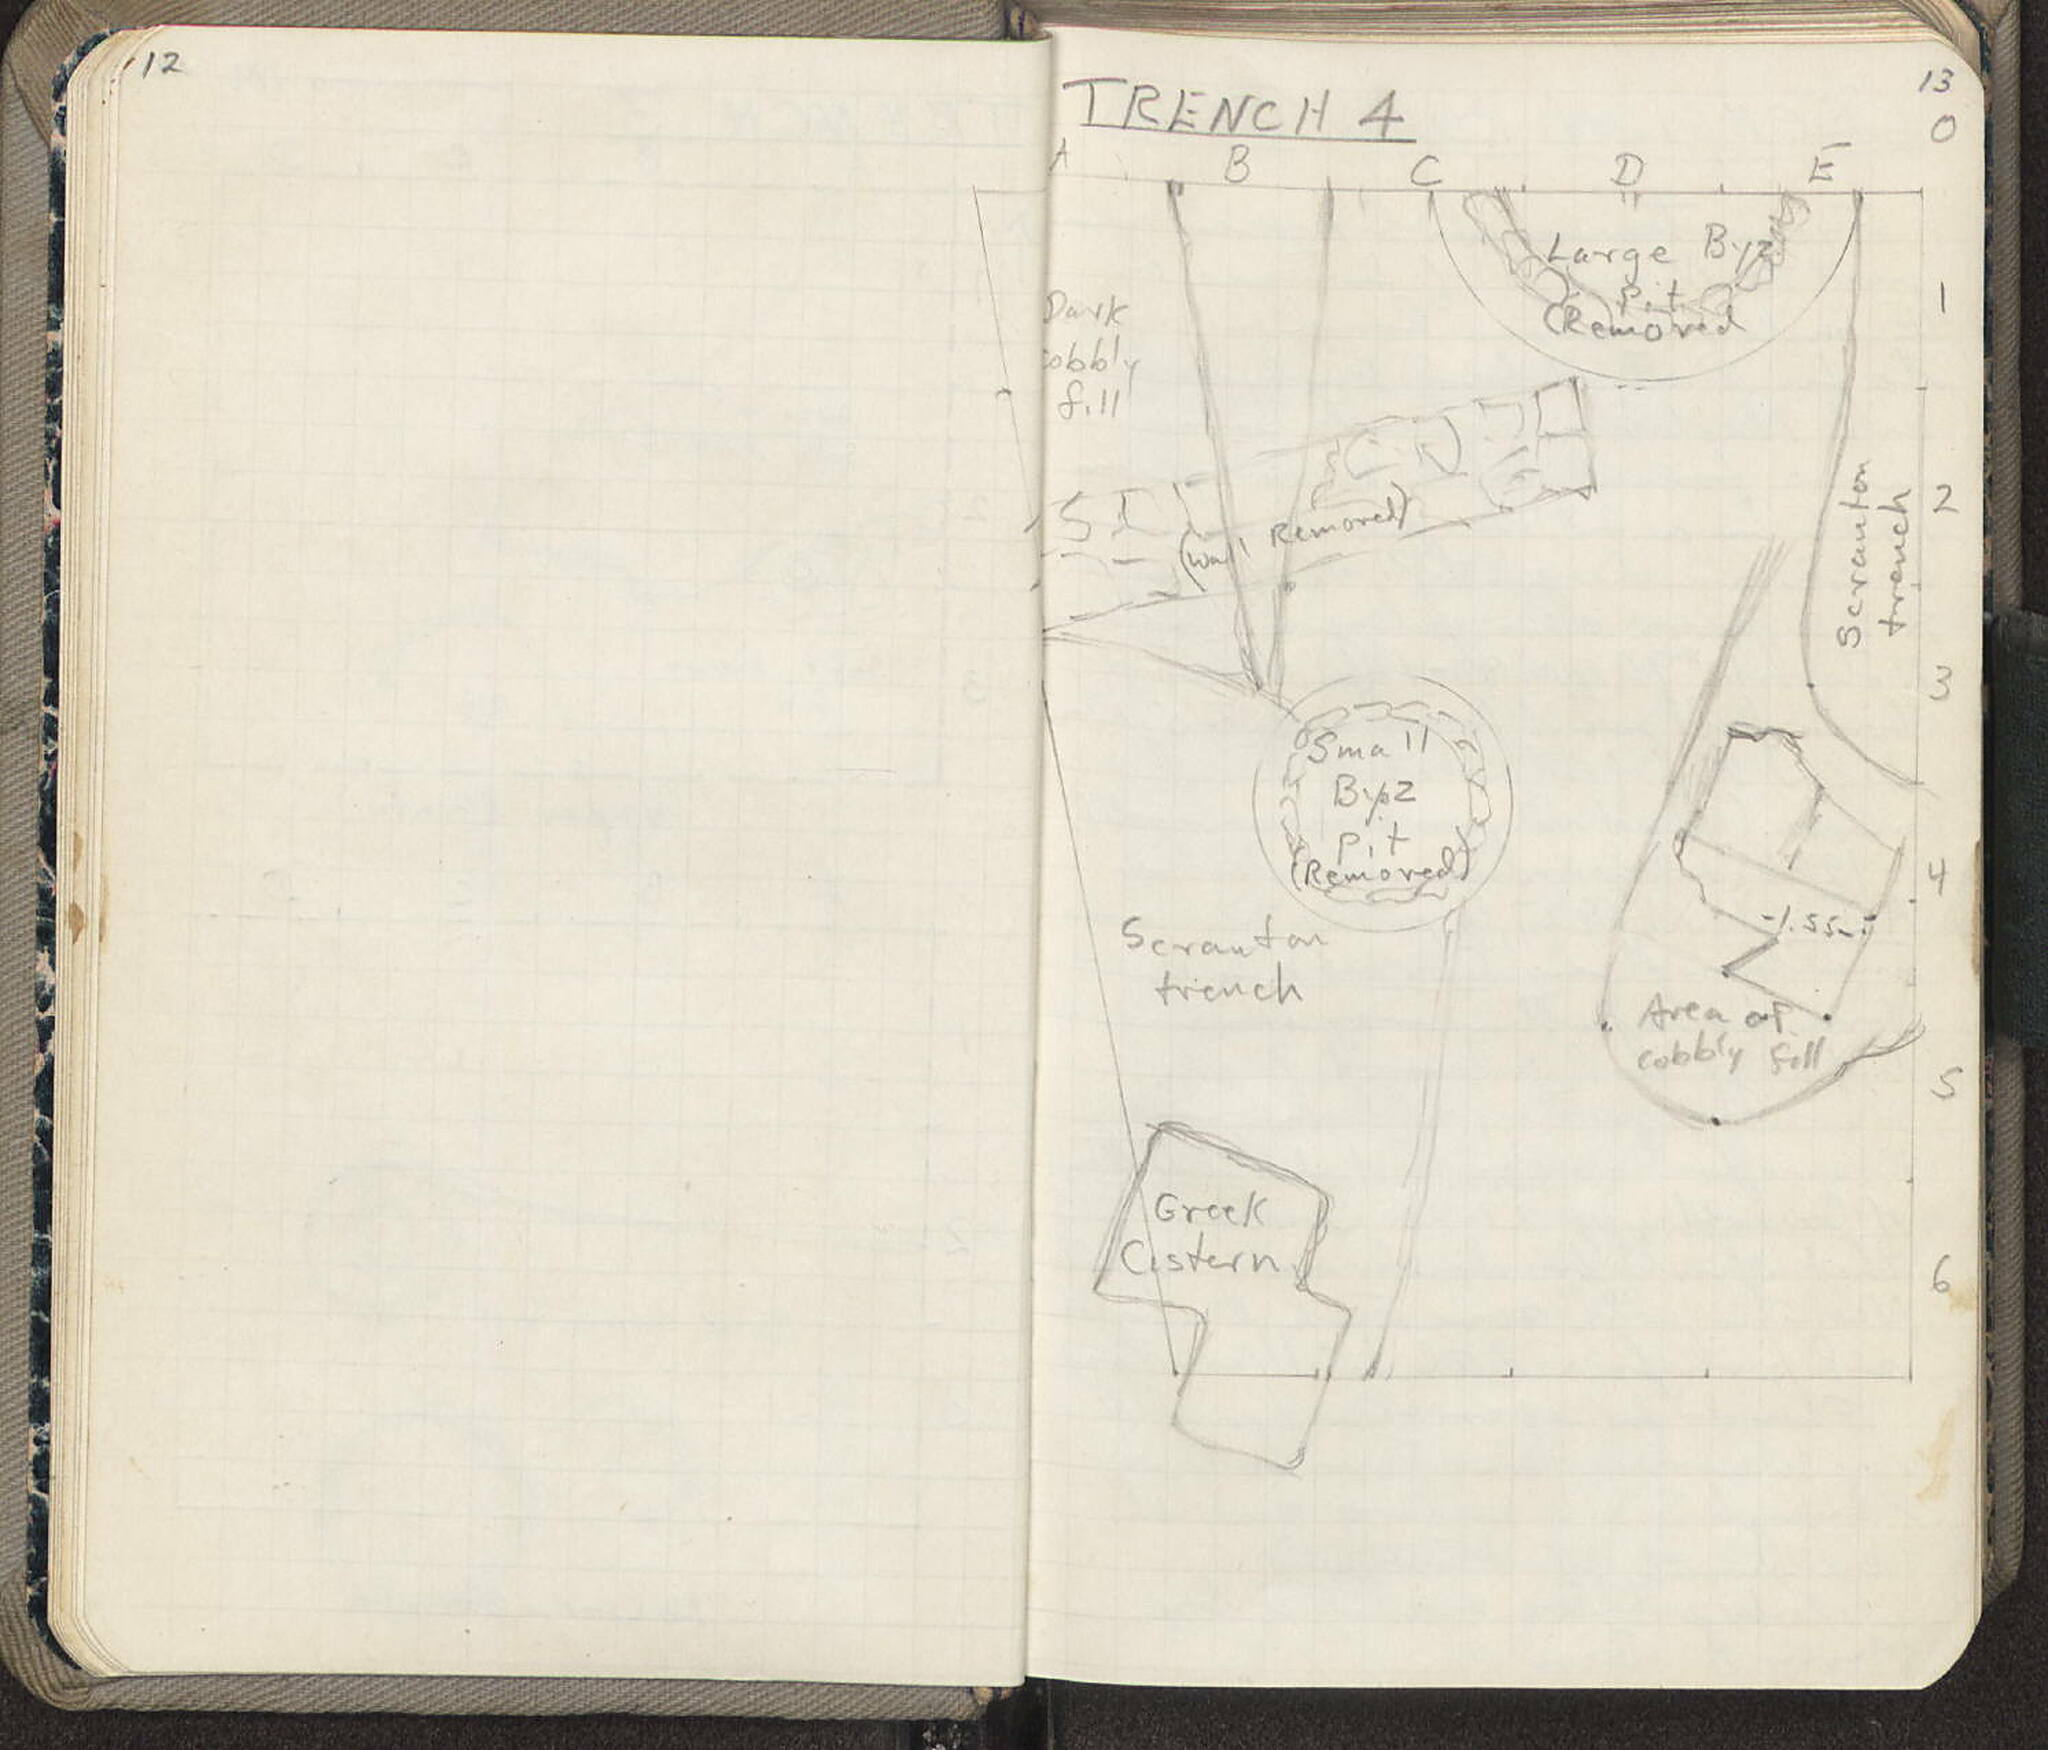 12
13
TRENCH 4
0
A B C D E
Large Byz
Pit
(Removed
1
Dark
cobbly
fill
2
(Wall Removed)
Scranton
trench
3
Small
Byz
Pit
(Removed)
4
-1.55m.
Scranton
trench
Area of
cobbly fill
5
Greek
Cistern
6